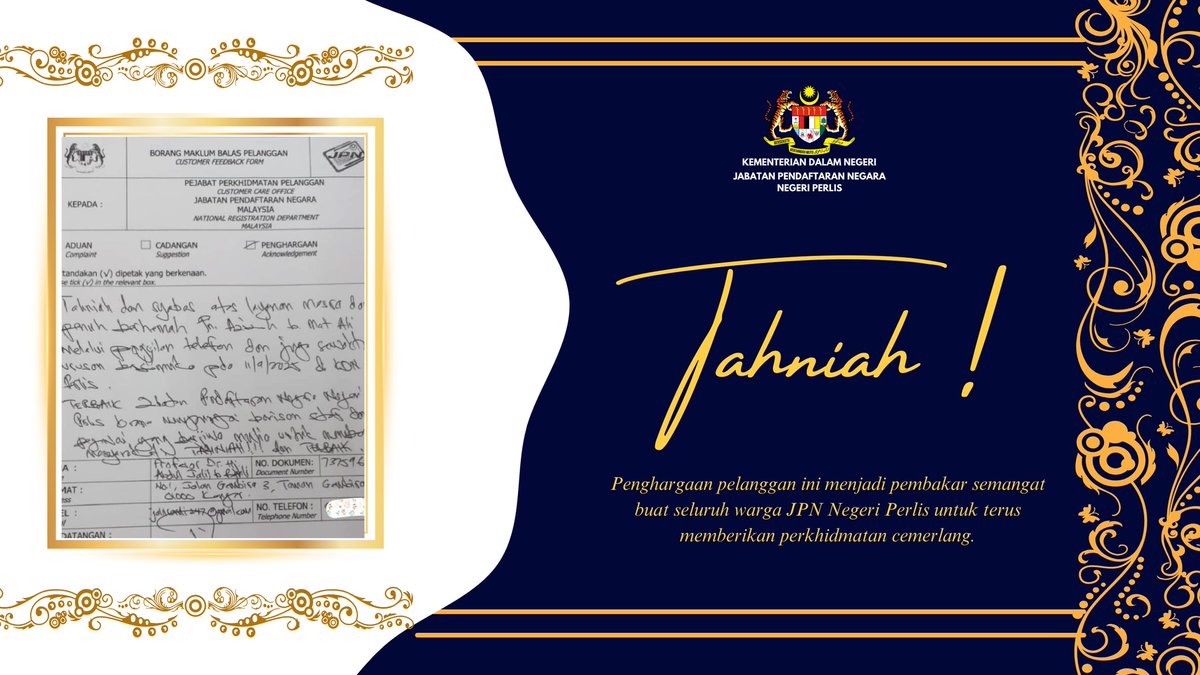 BORANG MAKLUM BALAS PELANGGAN
CUSTOMER FEEDBACK FORM
JPN
KEPADA :
PEJABAT PERKHIDMATAN PELANGGAN
CUSTOMER CARE OFFICE
JABATAN PENDAFTARAN NEGARA
MALAYSIA
NATIONAL REGISTRATION DEPARTMENT
MALAYSIA
ADUAN
Complaint
CADANGAN
Suggestion
PENGHARGAAN
Acknowledgement
tandakan (√) dipetak yang berkenaan.
se tick (√) in the relevant box.
Tahniah dan syabas atas layanan mesra dan
penuh berhemah Pn. b Mat Ali
Melalui panggilan telefon dan juga
urusan pada 11/9/2025 di KDN
Perlis.
TERBAIK Jabatan Pendaftaran Negara Negeri
Perlis mempunyai barisan staf dan
pegawai yang berjiwa mulia untuk
TAHNIAH!!! dan TERBAIK
Profesor Dr. Hj
Abdul Jalil b
NO. DOKUMEN:
Document Number
737596
MAT :
ess
No 1, Jalan 3, Taman
01000 Kangar
EL :
NO. TELEFON :
Telephone Number
DATANGAN :
KEMENTERIAN DALAM NEGERI
JABATAN PENDAFTARAN NEGARA
NEGERI PERLIS
Tahniah !
Penghargaan pelanggan ini menjadi pembakar semangat
buat seluruh warga JPN Negeri Perlis untuk terus
memberikan perkhidmatan cemerlang.